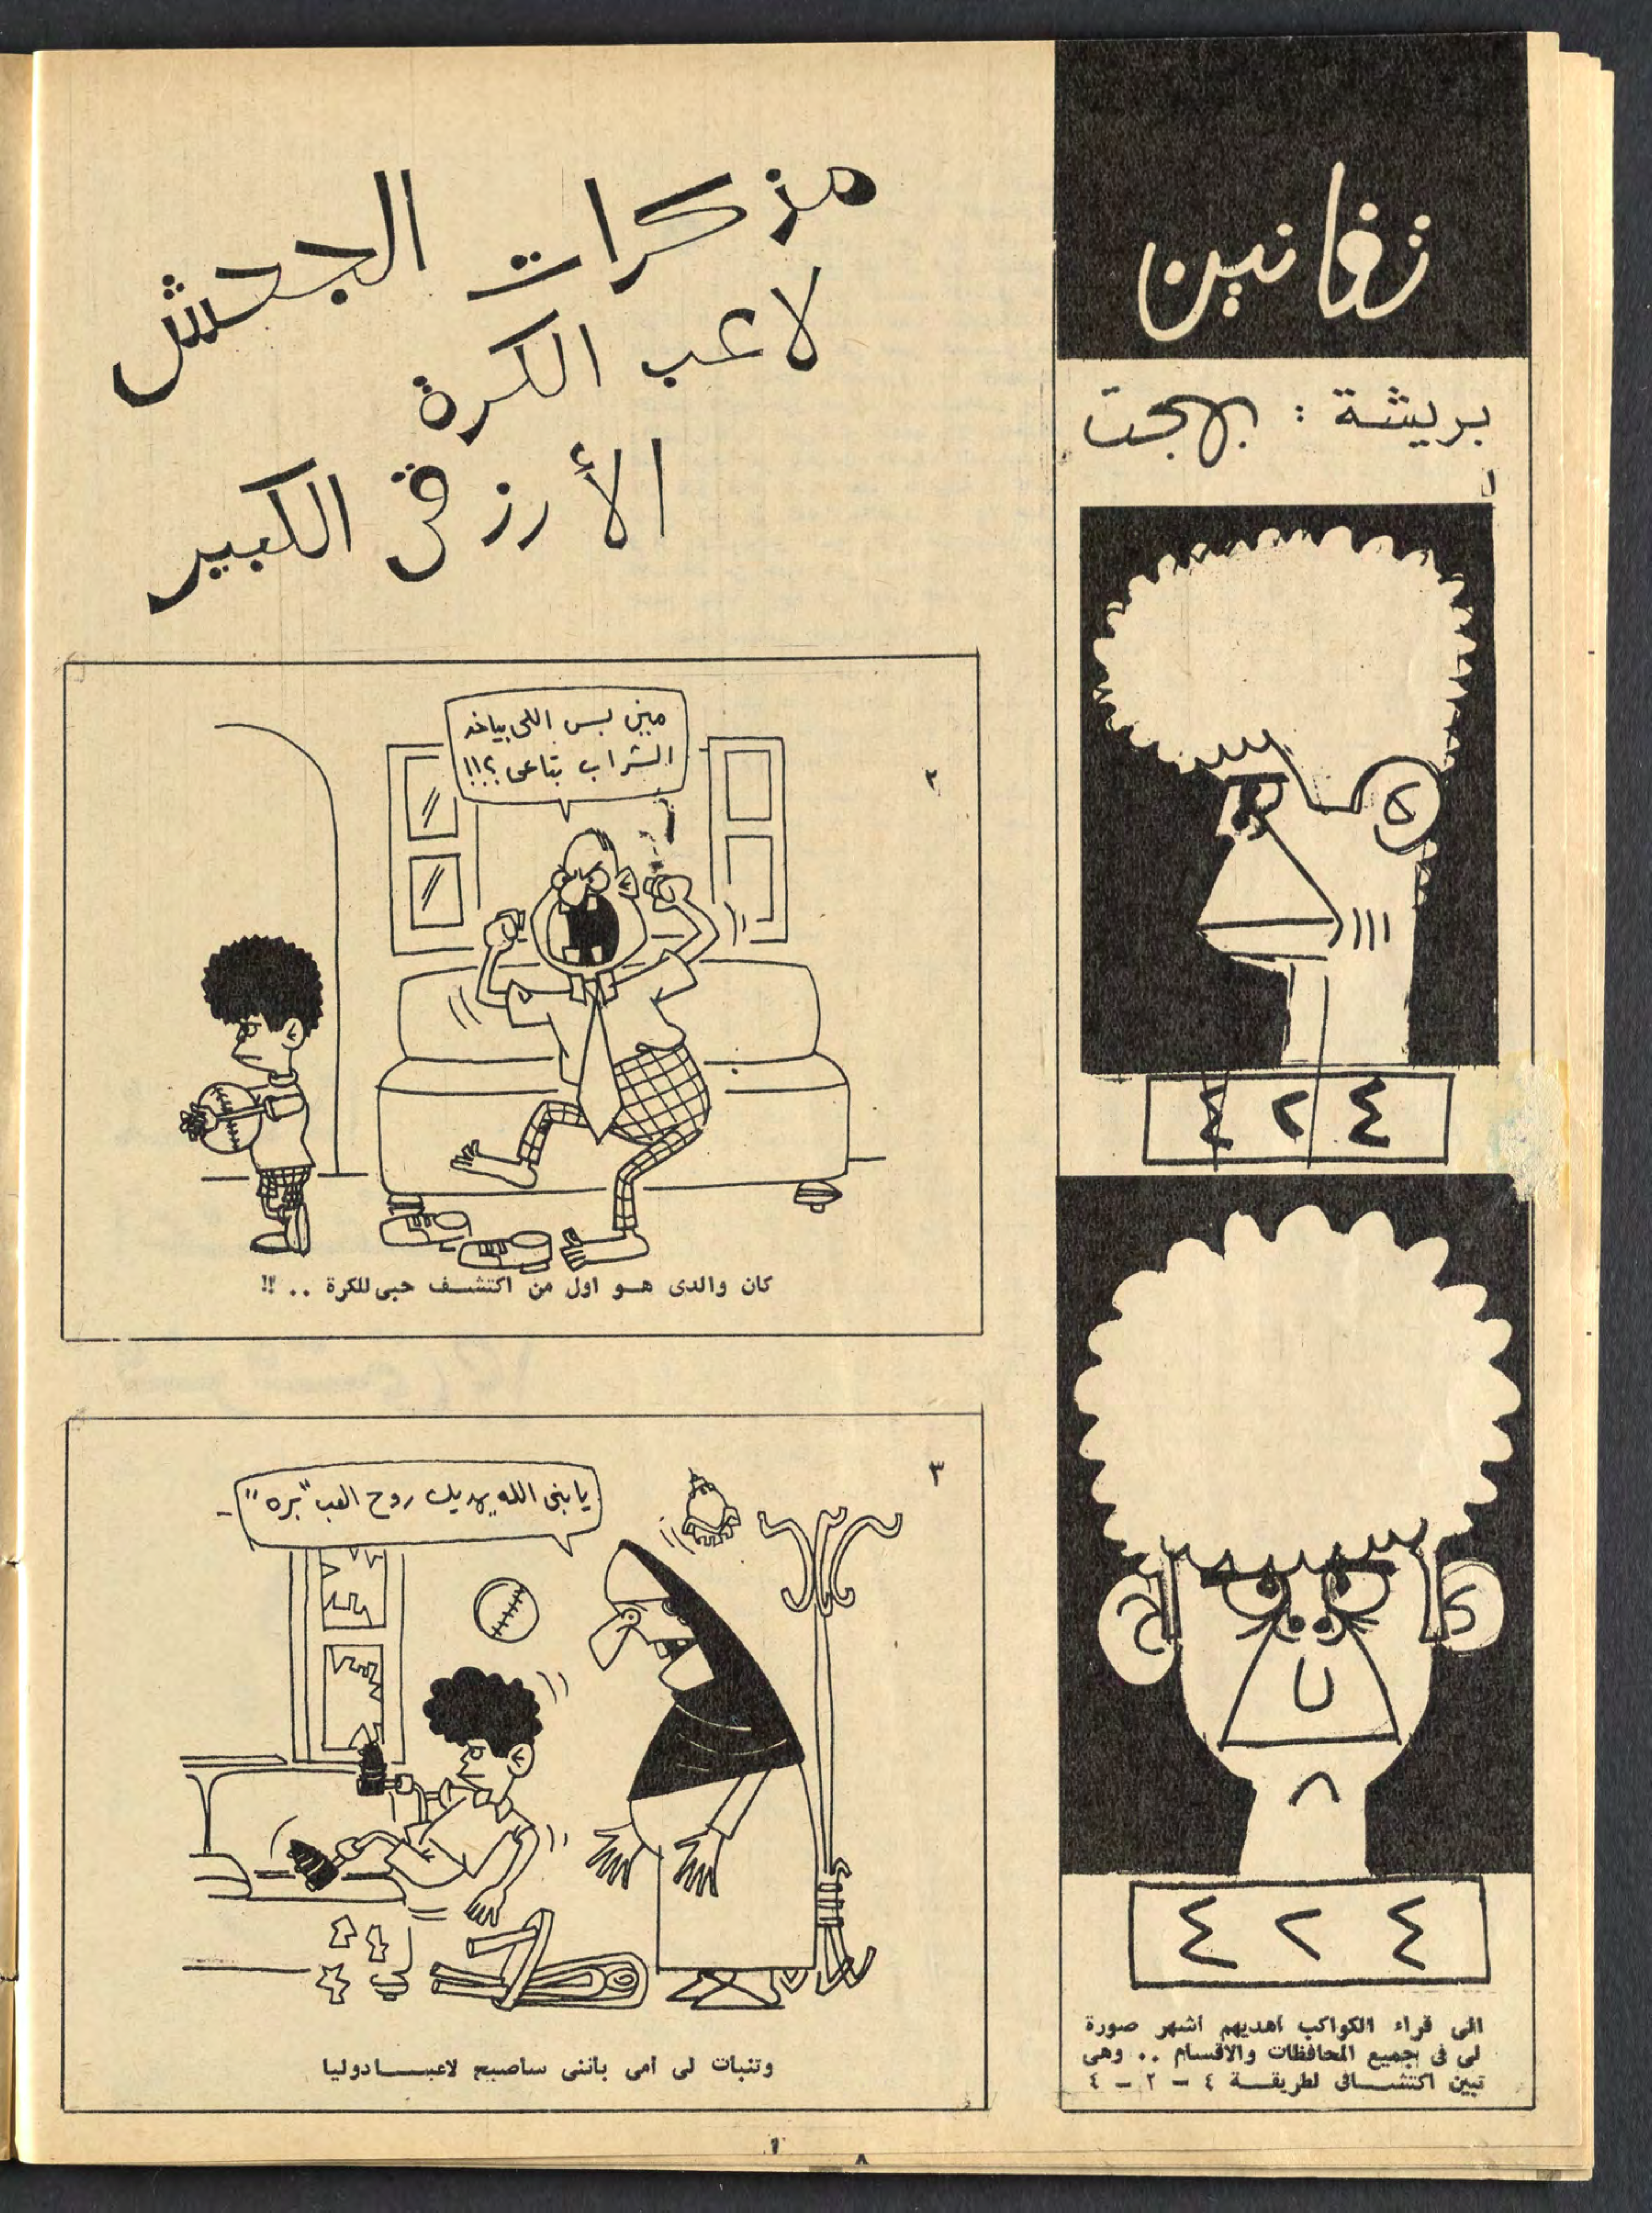 زغانين
بريشة : بهجت
١
٤ ٢ ٤
٤ ٢ ٤
الى قراء الكواكب أهديهم أشهر صورة
لى فى جميع المحافظات والاقسام .. وهى
تبين اكتشافى لطريقة ٤ - ٢ - ٤
مذكرات الجحش
لاعب الكرة
الأرزقى الكبير
٢
مين بس اللى بياخد
الشراب بتاعى ؟!!
كان والدى هو اول من اكتشف حبى للكرة .. !!
٣
يا بنى الله يهديك روح العب "بره"
وتنبات لى امى باننى ساصبح لاعبا دوليا